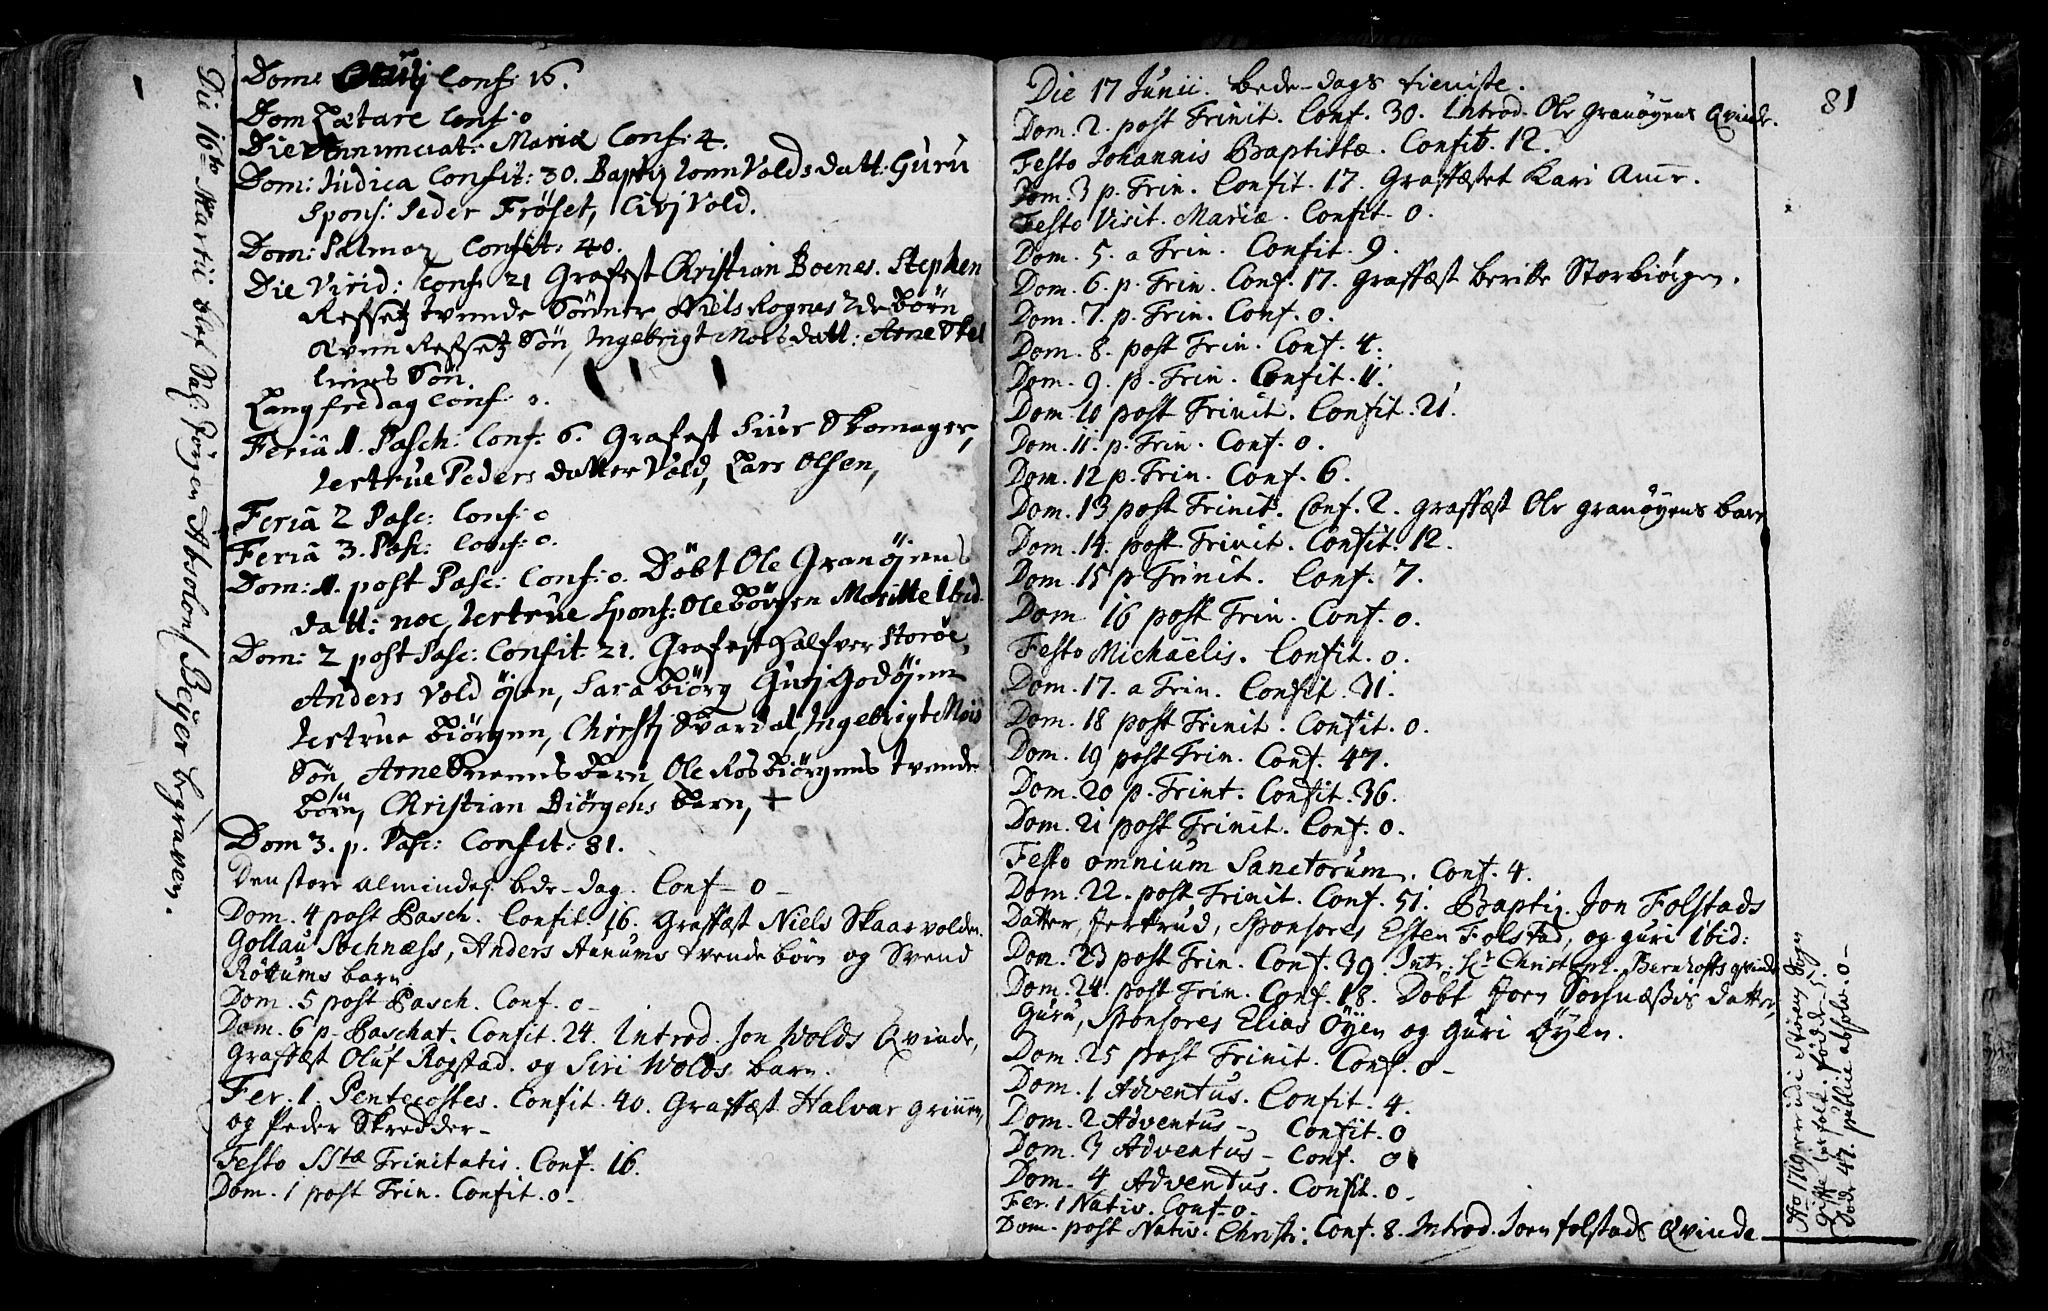 Die 16to Martii blef Sal: Jörgen Absolons Beijer begraven.
Dom: Oculj Conf: 16.
Dom Lætare Conf: 0
Die Annunciat: Mariæ Conf: 4.
Dom: Judica Confit: 30. Baptiz Vold datt: Guru
Spons: Peder Fröset, Vold.
Dom: Palmar Confit: 40.
Die Virid: Conf: 21 Grafest Christian Boenes. Stephen
Refsetz tvende Sönner Niels Rognes börn
Refsetz Sön, Ingebrigt Moes datt: Arne
Sön.
Langfredag Conf: 0.
Feriâ 1. Pasch: Conf: 6. Grafest Siur Skomager,
Jertrue Peders datter Vold, Lars Olsen,
Feriâ 2 Pasc: Conf: 0
Feriâ 3. Pasc: Conf: 0.
Dom: 1. post Pasc: Conf: 0. Döbt Ole Granöjens
datt: noe Jertrue Spons: Ole Börgen Maritte Ibid
Dom: 2 post Pasc: Confit: 21. Grafest Halfver Storöe,
Anders Vold öjen, Sara biörg Godöjen
Jertrue Biörgen, Christj Svardal, Ingebrigt Mois
Sön, Arne barn, Ole Rosbiörgens tvende
börn, Christian Biörgens barn, +
Dom 3. p. Pasc: Confit: 31.
Den store almindel. bede-dag. Conf- 0 -
Dom. 4 post Pasch. Confit. 16. Graffæst Niels Skaarvolden.
Gollau Sochnæss, Anders Aunums tvende börn og Svend
Röttums barn.
Dom. 5 post Pasch. Conf. 0 -
Dom. 6 p. Paschat. Confit. 24. Introd. Jon Wolds Qvinde,
Graffæst Oluf Rogstad. og Siri Wolds barn.
Fer. 1. Pentecostes. Confit. 40. Graffæst Halvar grinnen,
og Peder Skredder -
Festo SStæ Trinitatis. Conf. 16.
Dom. 1 post Trin. Confit. 0 -
81
Die 17 Junii. bede-dags tieniste.
Dom. 2. post Trinit. Conf. 30. Introd. Ole Granöyens Qvinde.
Festo Johannis Baptistæ. Confit. 12.
Dom. 3 p. Trin. Confit. 17. Graffæstet Kari
Festo Visit. Mariæ. Confit. 0.
Dom. 5. a Trin. Confit. 9.
Dom. 6. p. Trin. Conf. 17. Graffæst beritte Storbiörgen.
Dom. 7. p. Trin. Conf. 0.
Dom. 8. post Trin. Conf. 4.
Dom. 9. p. Trin. Confit. 11.
Dom. 10 post Trinit. Confit. 21.
Dom. 11. p. Trin. Conf. 0.
Dom. 12 p. Trin. Conf. 6.
Dom. 13 post Trinit. Conf. 2. graffæst Ole granöyens barn
Dom. 14. post Trinit. Confit. 12.
Dom. 15 p Trinit. Conf. 7.
Dom 16 post Trin. Conf. 0.
Festo Michaëlis. Confit. 0.
Dom. 17. a Trin. Confit. 31.
Dom. 18 post Trinit. Confit. 0.
Dom. 19 post Trin. Conf. 47.
Dom. 20 p. Trint. Confit. 36.
Dom. 21 post Trinit. Conf. 0.
Festo omnium Sanctorum. Conf. 4.
Dom. 22. post Trinit. Conf. 51. Baptiz. Jon Folstads
Datter, Jertrud, Sponsores Esten Folstad, og guri ibid:
Dom. 23 post Trin. Conf. 39. Intr. Sr Christoph. Bernhofts qvinde
Dom. 24. post Trin. Conf. 18. Döbt Jorn Sochnæssis datter,
Guru, Sponsores Elias Öyen og guri Öyen.
Dom. 25 post Trinit. Conf. 0 -
Dom. 1 Adventus. Confit. 4.
Dom. 2 Adventus - Confit. 0
Dom. 3 Adventus - Conf. 0
Dom. 4 Adventus. Confit. 0 -
Fer. 1 Nativ. Conf- 0 -
Dom. post Nativ. Christi: Conf. 8. Introd. Jorn folstads Qvinde
Ao 1719 ere udi Störens Sogn
gifte folk. födde 51.
döde 47. publicè absolv. 0 -